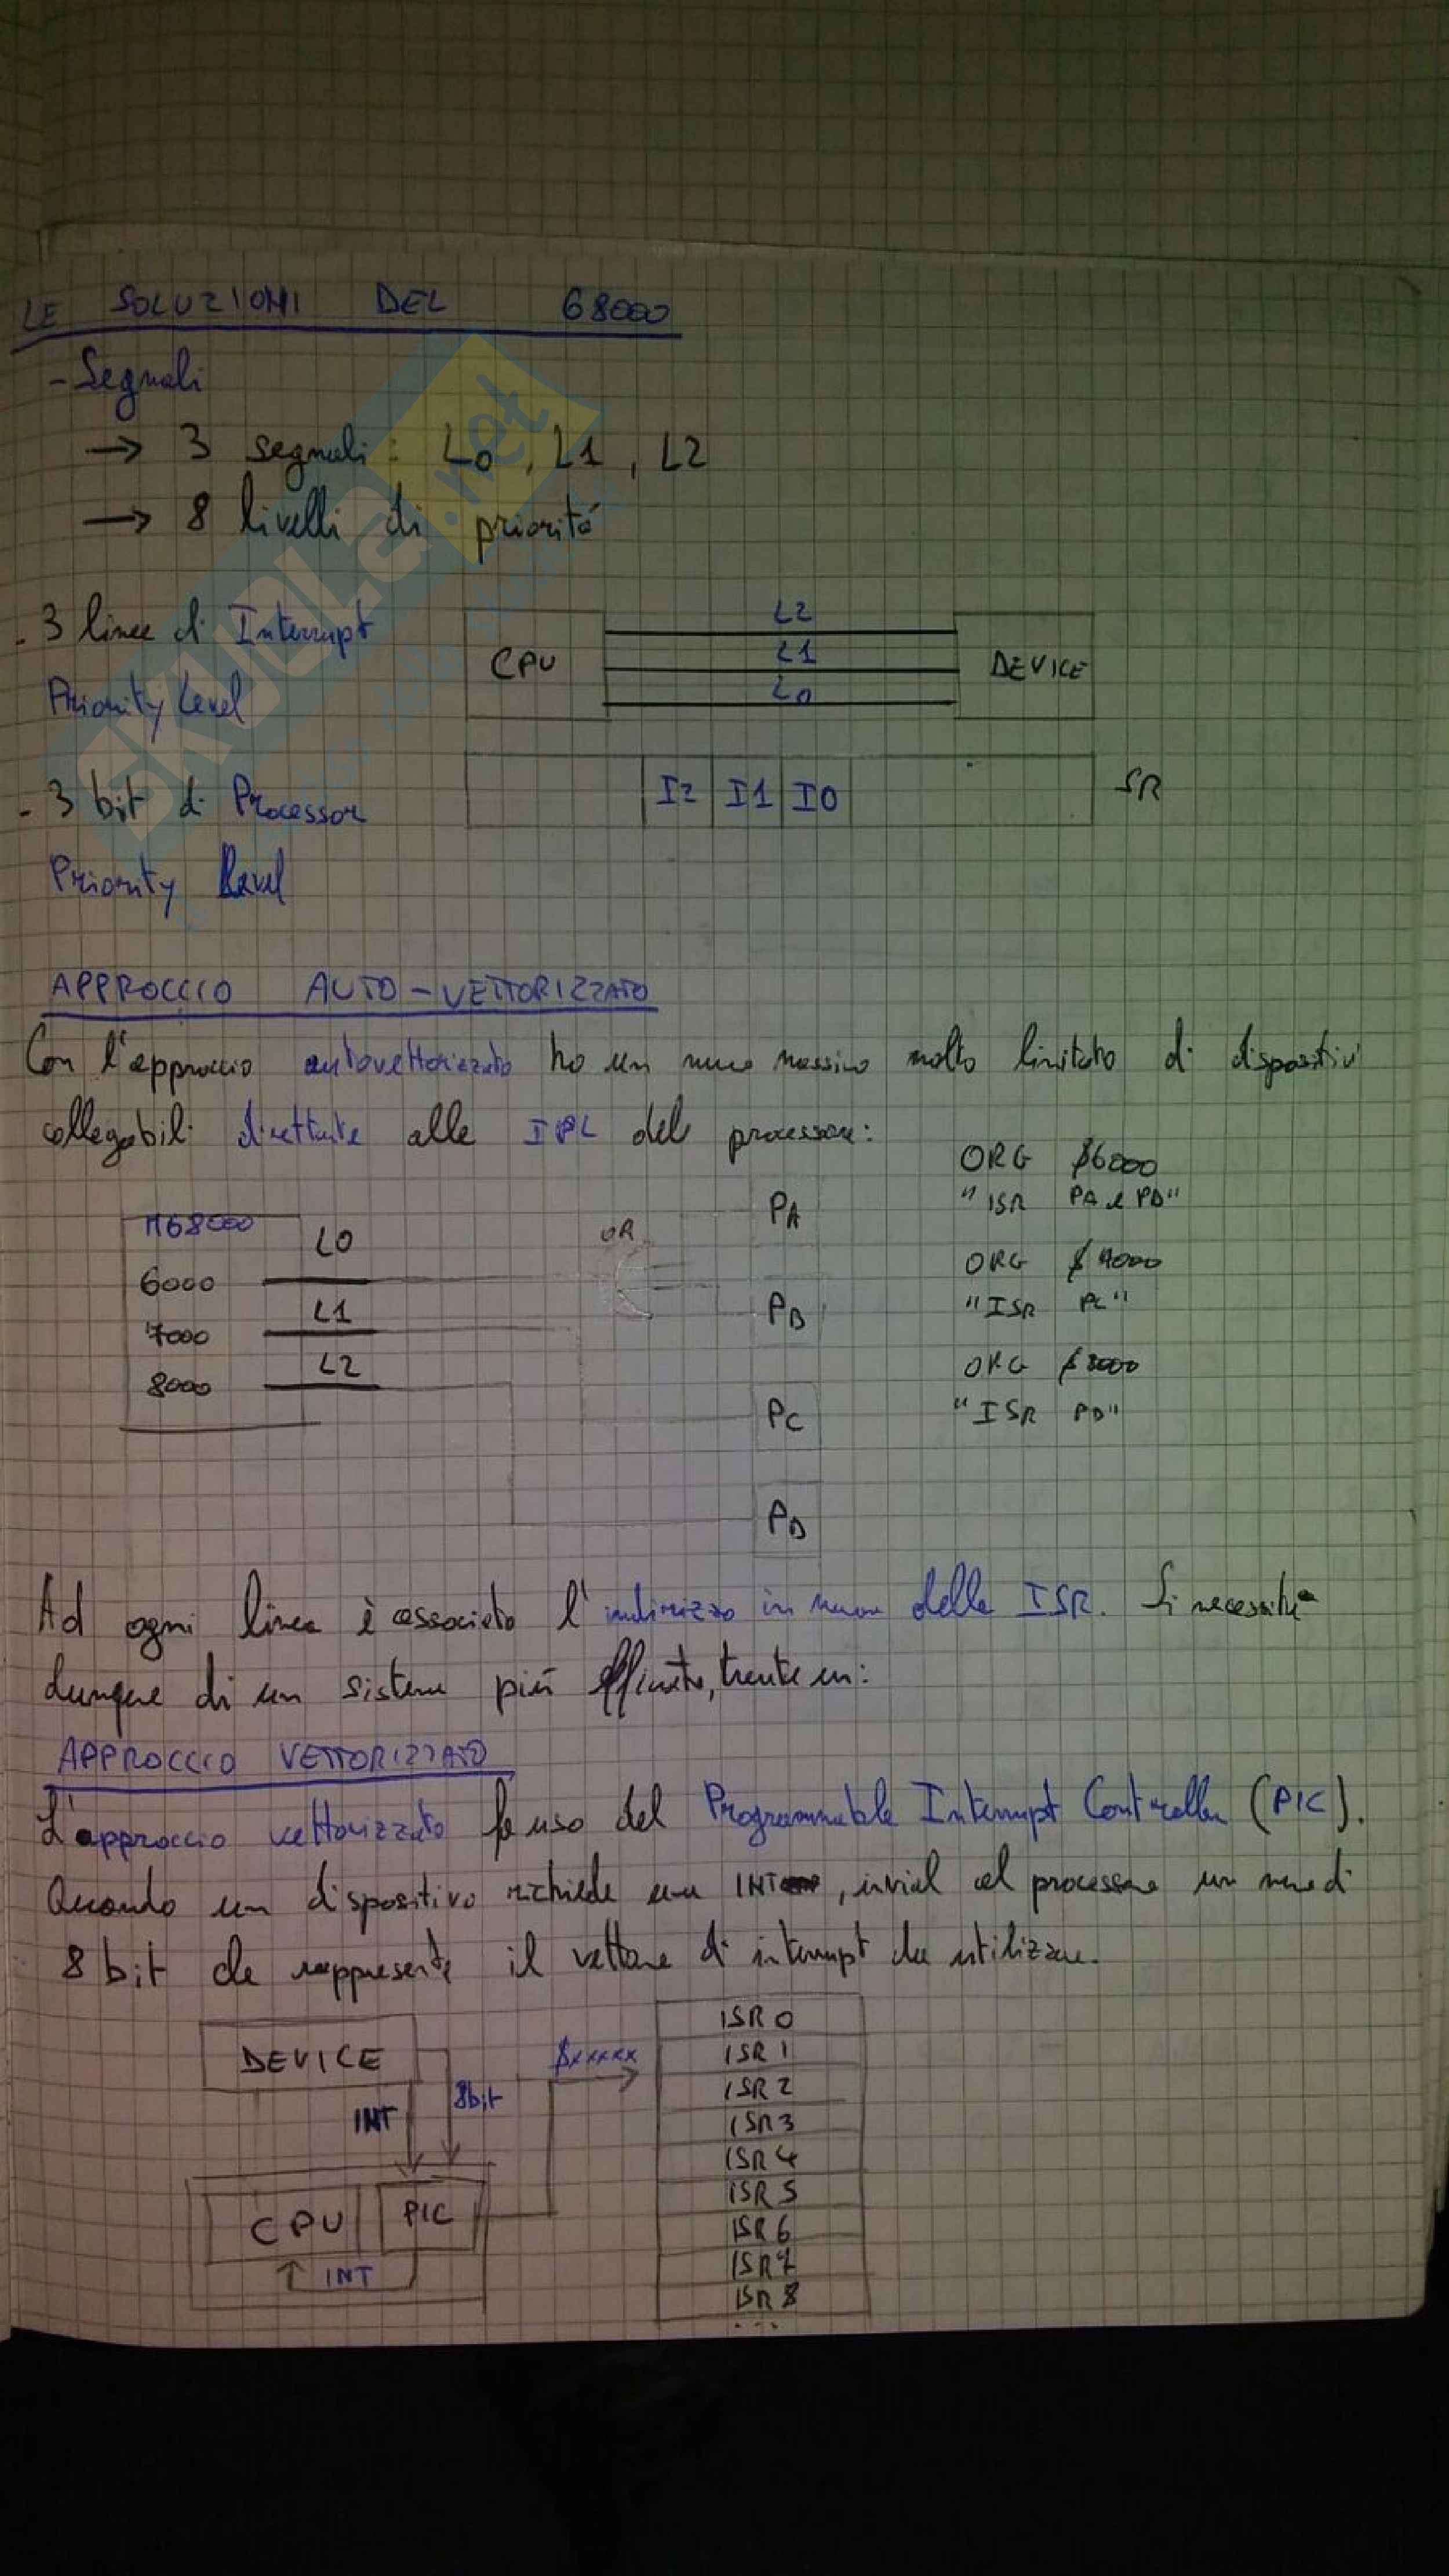 LE SOLUZIONI DEL 68000
- Segnali
→ 3 segnali: L0, L1, L2
→ 8 livelli di priorità
- 3 linee di Interrupt
Priority Level
CPU
L2
L1
L0
DEVICE
- 3 bit di Processor
Priority Level
I2 I1 I0
SR
APPROCCIO AUTO-VETTORIZZATO
Con l'approccio autovettorizzato ho un massimo molto limitato di dispositivi
collegabili alle IPL del processore:
M68000
6000
7000
8000
L0
L1
L2
OR
PA
PB
PC
PD
ORG $6000
"ISR PA e PB"
ORG $7000
"ISR PC"
ORG $8000
"ISR PD"
Ad ogni linea è associato l'indirizzo in della ISR. Si necessita
dunque di un sistema più in:
APPROCCIO VETTORIZZATO
L'approccio vettorizzato fa uso del Programmable Interrupt Controller (PIC).
Quando un dispositivo richiede una INT, al processore un di
8 bit che rappresenta il vettore di interrupt da utilizzare.
DEVICE
INT
8bit
CPU
PIC
INT
$xxxxx
ISR 0
ISR 1
ISR 2
ISR 3
ISR 4
ISR 5
ISR 6
ISR 7
ISR 8
...
SKUOLA.net